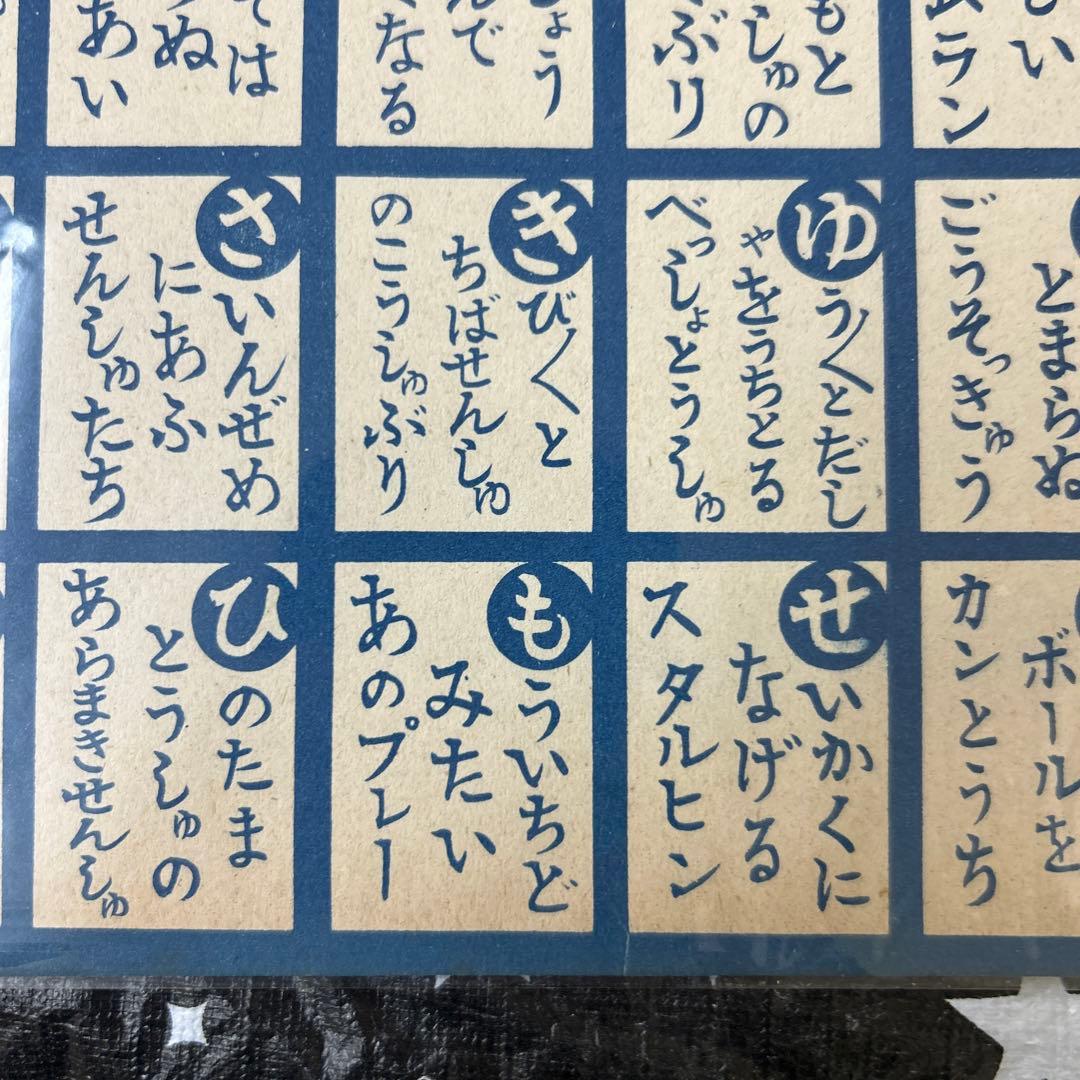 い
ラン
もと
しゅの
ぶり
ょう
んで
なる
ては
ぬ
あい
とまらぬ
ごうそっきゅう
ゆう〳〵とだし
ゃをうちとる
べっしょとうしゅ
きび〳〵と
ちばせんしゅ
のこうしゅぶり
さいんぜめ
にあふ
せんしゅたち
ボールを
カンとうち
せいかくに
なげる
スタルヒン
もういちど
みたい
あのプレー
ひのたま
とうしゅの
あらまきせんしゅ